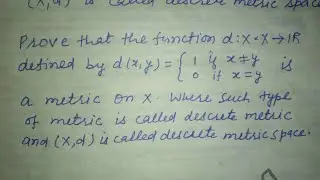 (X,d) is called descrete metric space
Prove that the function d: X × X → IR
defined by d(x,y) = { 1 if x ≠ y is
0 if x = y
a metric on X. Where such type
of metric is called descrete metric
and (X,d) is called descrete metric space.